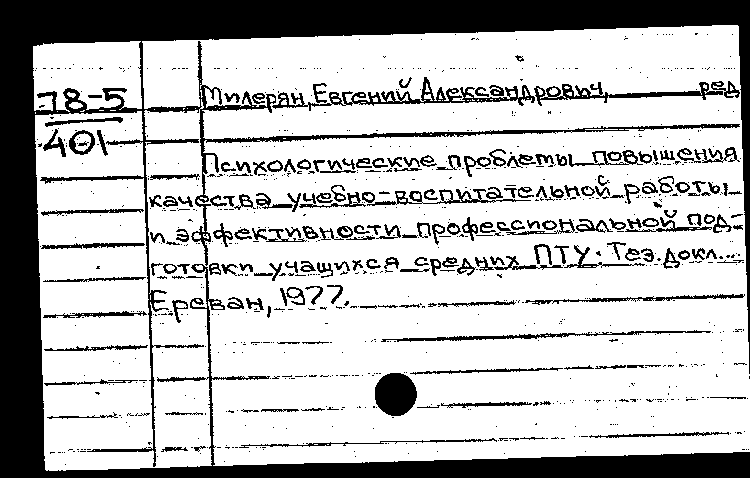 78-5
401
Милерян, Евгений Александрович, ред
Психологические проблемы повышения
качества учебно-воспитательной работы
и эффективности профессиональной под-
готовки учащихся средних ПТУ. Тез. докл...
Ереван, 1977.